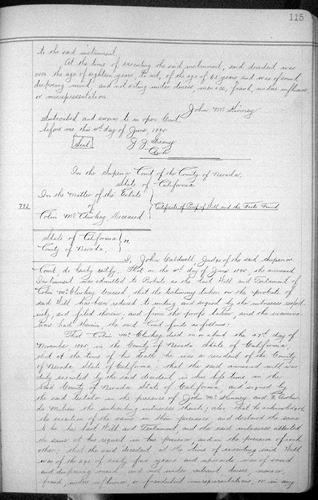 115
to the said instrument.
At the time of executing the said instrument, said decedent was
over the age of eighteen years, to wit, of the age of 65 years and was of sound,
disposing mind, and not acting under duress, menace, fraud, undue influence
or misrepresentation.
John McKinney
Subscribed and sworn to in open Court
before me this day of June, 1895
Seal
Clerk
In the Superior Court of the County of Nevada,
State of California
In the Matter of the Estate
of
Certificate of Proof of Will and the Facts Found
Deceased
State of California
County of Nevada.
I, John Caldwell, Judge of the said Superior
Court, do hereby certify. That on the day of June 1895, the annexed
Instrument was admitted to Probate as the Last Will and Testament of
Deceased, that the testimony taken in the probate of
said Will has been reduced to writing and signed by the witnesses
and filed herein, and from the proofs taken, and the
had therein, the said Court finds as follows:
That died on or about the 27th day of
November in the County of Nevada State of California,
that at the time of his death he was a resident of the County
of Nevada State of California, that the said annexed will was
executed by the said decedent in his life time in the
said County of Nevada State of California, and signed by
the said testator in the presence of John McKinney and
the subscribing witnesses thereto, also that he acknowledged
the execution of the same in their presence, and declared the same
to be his last Will and Testament, and the said witnesses attested
the same at his request in his presence, and in the presence of each
other; that the said decedent at the time of executing said Will
was of the age of sixty five years and upwards, was of sound
and disposing mind, and not under restraint, duress, menace,
fraud, undue influence, or fraudulent misrepresentations, or in any